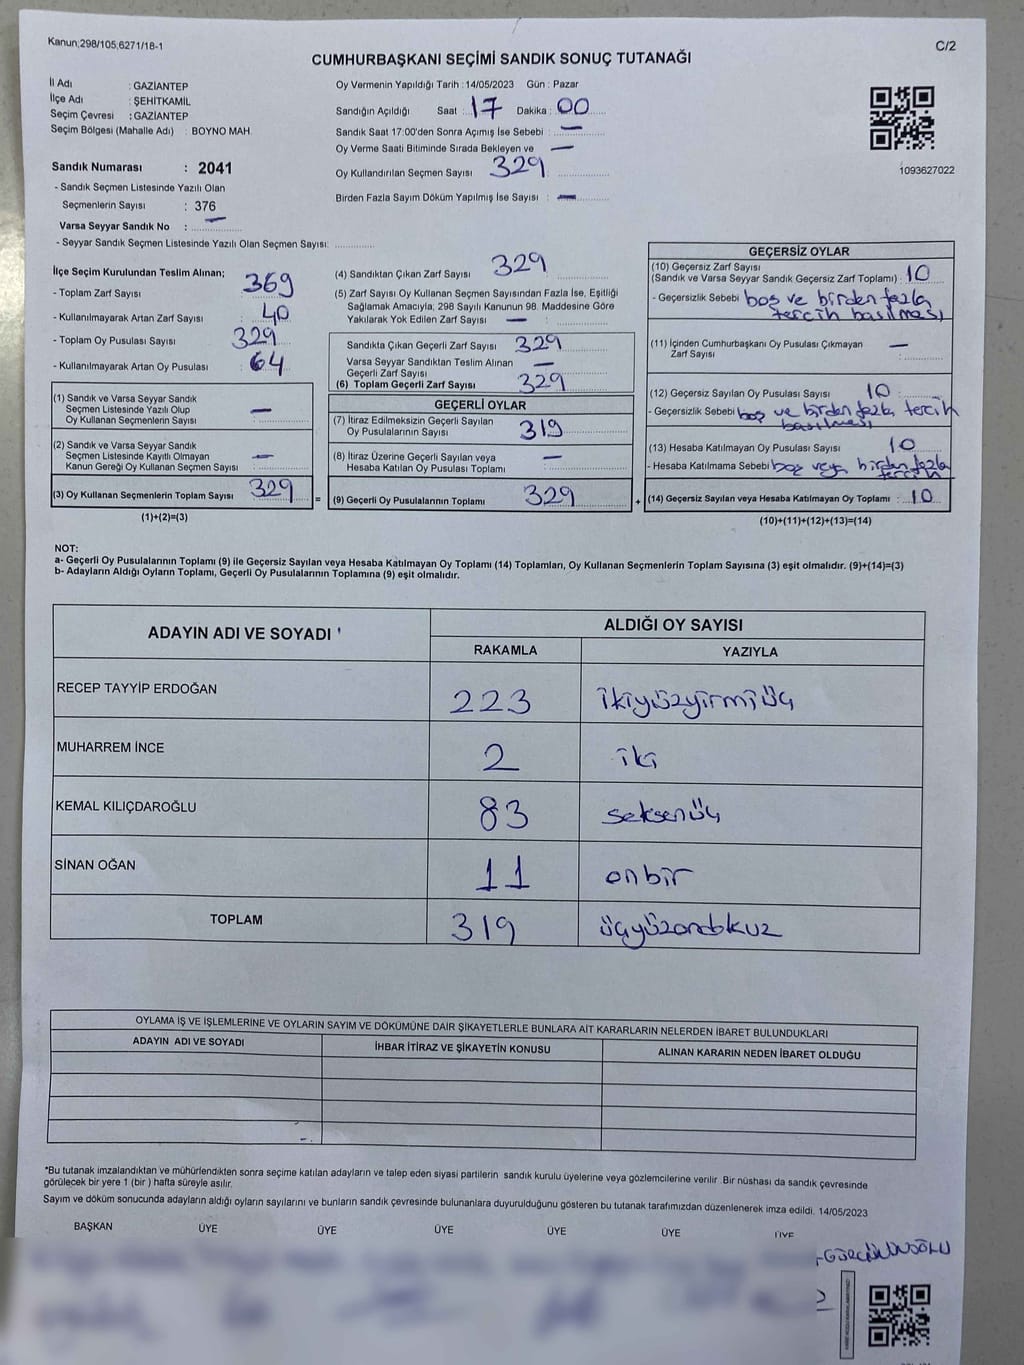 Kanun;298/105,6271/18-1
C/2
CUMHURBAŞKANI SEÇİMİ SANDIK SONUÇ TUTANAĞI
İl Adı : GAZİANTEP
İlçe Adı : ŞEHİTKAMİL
Seçim Çevresi : GAZİANTEP
Seçim Bölgesi (Mahalle Adı) : BOYNO MAH.
Oy Vermenin Yapıldığı Tarih : 14/05/2023 Gün : Pazar
Sandığın Açıldığı Saat : 17 Dakika : 00
Sandık Saat 17:00'den Sonra Açımış İse Sebebi : —
Oy Verme Saati Bitiminde Sırada Bekleyen ve —
Oy Kullandırılan Seçmen Sayısı : 329
Birden Fazla Sayım Döküm Yapılmış İse Sayısı : —
1093627022
Sandık Numarası : 2041
- Sandık Seçmen Listesinde Yazılı Olan
Seçmenlerin Sayısı : 376
Varsa Seyyar Sandık No : —
- Seyyar Sandık Seçmen Listesinde Yazılı Olan Seçmen Sayısı:
İlçe Seçim Kurulundan Teslim Alınan;
- Toplam Zarf Sayısı : 369
- Kullanılmayarak Artan Zarf Sayısı : 40
- Toplam Oy Pusulası Sayısı : 329
- Kullanılmayarak Artan Oy Pusulası : 64
(1) Sandık ve Varsa Seyyar Sandık
Seçmen Listesinde Yazılı Olup
Oy Kullanan Seçmenlerin Sayısı : —
(2) Sandık ve Varsa Seyyar Sandık
Seçmen Listesinde Kayıtlı Olmayan
Kanun Gereği Oy Kullanan Seçmen Sayısı : —
(3) Oy Kullanan Seçmenlerin Toplam Sayısı : 329
(1)+(2)=(3)
=
(4) Sandıktan Çıkan Zarf Sayısı : 329
(5) Zarf Sayısı Oy Kullanan Seçmen Sayısından Fazla İse, Eşitliği
Sağlamak Amacıyla, 298 Sayılı Kanunun 98. Maddesine Göre
Yakılarak Yok Edilen Zarf Sayısı : —
Sandıkta Çıkan Geçerli Zarf Sayısı : 329
Varsa Seyyar Sandıktan Teslim Alınan
Geçerli Zarf Sayısı : —
(6) Toplam Geçerli Zarf Sayısı : 329
GEÇERLİ OYLAR
(7) İtiraz Edilmeksizin Geçerli Sayılan
Oy Pusulalarının Sayısı : 319
(8) İtiraz Üzerine Geçerli Sayılan veya
Hesaba Katılan Oy Pusulası Toplamı : —
(9) Geçerli Oy Pusulalarının Toplamı : 329
+
GEÇERSİZ OYLAR
(10) Geçersiz Zarf Sayısı
(Sandık ve Varsa Seyyar Sandık Geçersiz Zarf Toplamı) : 10
- Geçersizlik Sebebi : boş ve birden fazla
tercih basılması
(11) İçinden Cumhurbaşkanı Oy Pusulası Çıkmayan
Zarf Sayısı : —
(12) Geçersiz Sayılan Oy Pusulası Sayısı : 10
- Geçersizlik Sebebi : boş ve birden fazla tercih
basılması
(13) Hesaba Katılmayan Oy Pusulası Sayısı : 10
- Hesaba Katılmama Sebebi : boş veya birden fazla
tercih
(14) Geçersiz Sayılan veya Hesaba Katılmayan Oy Toplamı : 10
(10)+(11)+(12)+(13)=(14)
NOT:
a- Geçerli Oy Pusulalarının Toplamı (9) ile Geçersiz Sayılan veya Hesaba Katılmayan Oy Toplamı (14) Toplamları, Oy Kullanan Seçmenlerin Toplam Sayısına (3) eşit olmalıdır. (9)+(14)=(3)
b- Adayların Aldığı Oyların Toplamı, Geçerli Oy Pusulalarının Toplamına (9) eşit olmalıdır.
ADAYIN ADI VE SOYADI
ALDIĞI OY SAYISI
RAKAMLA YAZIYLA
RECEP TAYYİP ERDOĞAN 223 ikiyüzyirmiüç
MUHARREM İNCE 2 iki
KEMAL KILIÇDAROĞLU 83 seksenüç
SİNAN OĞAN 11 onbir
TOPLAM 319 üçyüzondokuz
OYLAMA İŞ VE İŞLEMLERİNE VE OYLARIN SAYIM VE DÖKÜMÜNE DAİR ŞİKAYETLERLE BUNLARA AİT KARARLARIN NELERDEN İBARET BULUNDUKLARI
ADAYIN ADI VE SOYADI İHBAR İTİRAZ VE ŞİKAYETİN KONUSU ALINAN KARARIN NEDEN İBARET OLDUĞU
*Bu tutanak imzalandıktan ve mühürlendikten sonra seçime katılan adayların ve talep eden siyasi partilerin sandık kurulu üyelerine veya gözlemcilerine verilir. Bir nüshası da sandık çevresinde
görülecek bir yere 1 (bir ) hafta süreyle asılır.
Sayım ve döküm sonucunda adayların aldığı oyların sayılarını ve bunların sandık çevresinde bulunanlara duyurulduğunu gösteren bu tutanak tarafımızdan düzenlenerek imza edildi. 14/05/2023
BAŞKAN ÜYE ÜYE ÜYE ÜYE ÜYE ÜYE